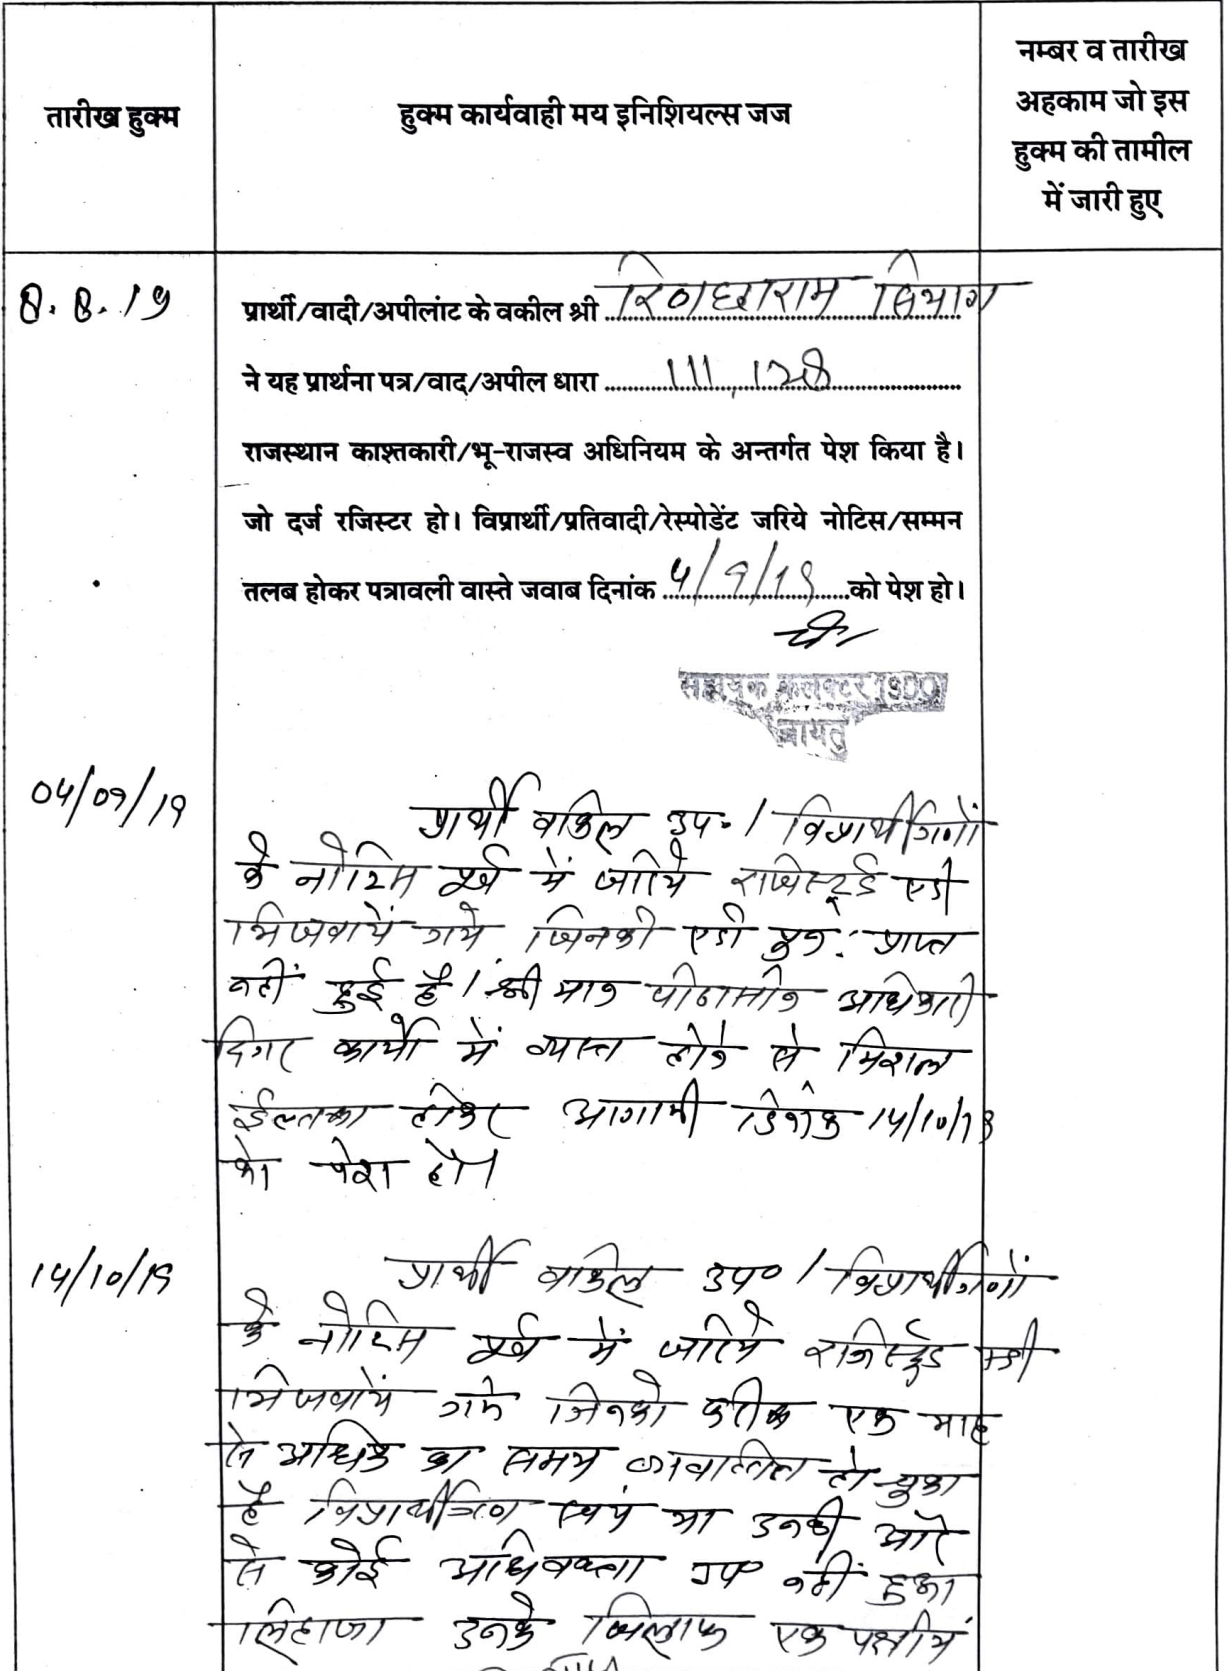 तारीख हुक्म
हुक्म कार्यवाही मय इनिशियल्स जज
नम्बर व तारीख
अहकाम जो इस
हुक्म की तामील
में जारी हुए
8.8.19
प्रार्थी/वादी/अपीलांट के वकील श्री रिणछाराम सियाग
ने यह प्रार्थना पत्र/वाद/अपील धारा 111, 128
राजस्थान काश्तकारी/भू-राजस्व अधिनियम के अन्तर्गत पेश किया है।
जो दर्ज रजिस्टर हो। विप्रार्थी/प्रतिवादी/रेस्पोडेंट जरिये नोटिस/सम्मन
तलब होकर पत्रावली वास्ते जवाब दिनांक 4/9/19 को पेश हो।
सहायक कलक्टर
बायतु
04/09/19
प्रार्थी वकिल उप. / विप्रार्थीगणों
के नोटिस पूर्व में जरिये रजिस्ट्रर्ड एडी
भिजवायें गये जिनकी एडी पुन: प्राप्त
नहीं हुई है / श्री मान पीठासीन अधिकारी
दिगर कार्यो में व्यस्त होने से मिशल
ईल्तवा होकर आगामी दिनांक 14/10/19
को पेश हो।
14/10/19
प्रार्थी वकिल उप० / विप्रार्थीगणों
के नोटिस पूर्व में जरिये रजिस्ट्रेड एडी
भिजवायें गये जिनको करीब एक माह
से अधिक का समय व्यवतित हो चुका
है विप्रार्थीगण स्वयं या उनकी ओर
से कोई अधिवक्ता उप० नहीं हुआ
लिहाजा उनके खिलाफ एक पक्षीय